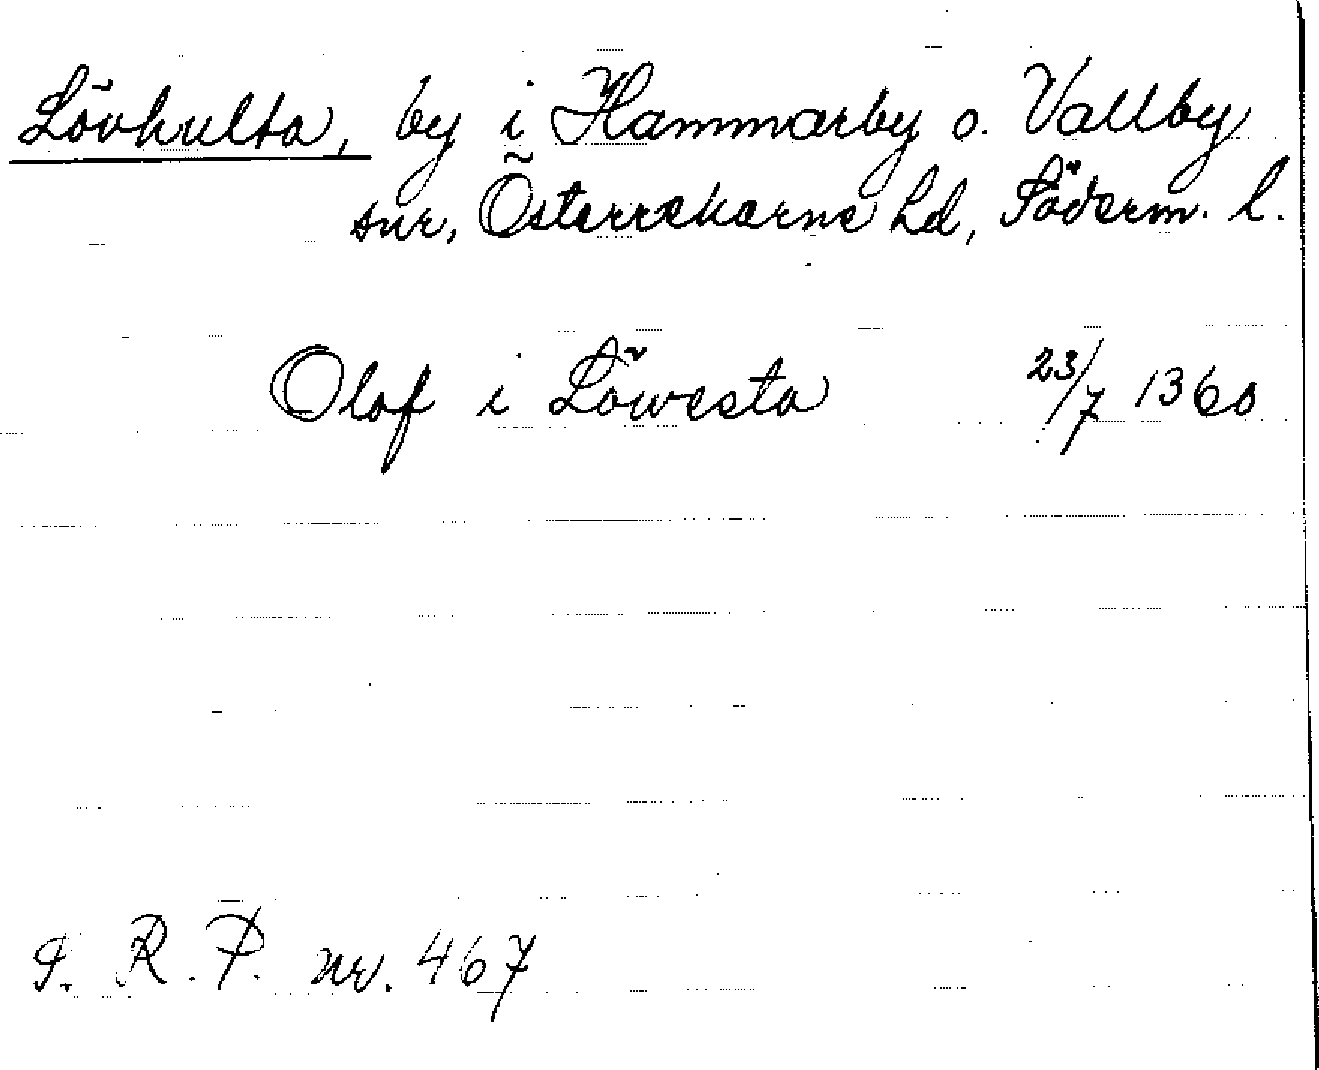 Lövhulta, by i Hammarby o. Vallby
snr, Österrekarne hd, Söderm. l.
Olof i Löwesta 23/7 1360
S. R. P. nr. 467